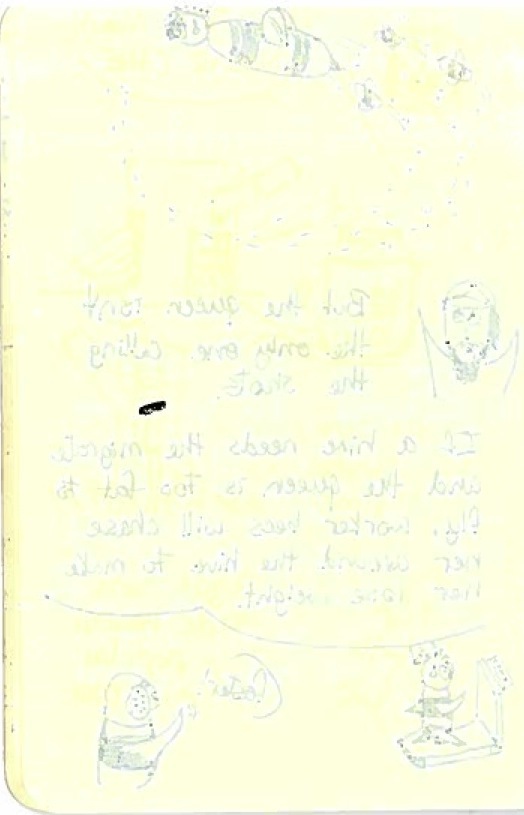 But the queen isn't
the only one calling
the shots.
If a hive needs the migrate
and the queen is too fat to
fly, worker bees will chase
her around the hive to make
her lose weight.
Faster!